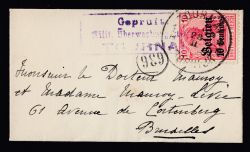 Geprüft
Milit. Überwachungs
TOURNAI
Belgien
10 Centimes
639
Monsieur le Docteur Mauroy
et Madame Mauroy-Livie
61 Avenue de Cortenberg
Bruxelles